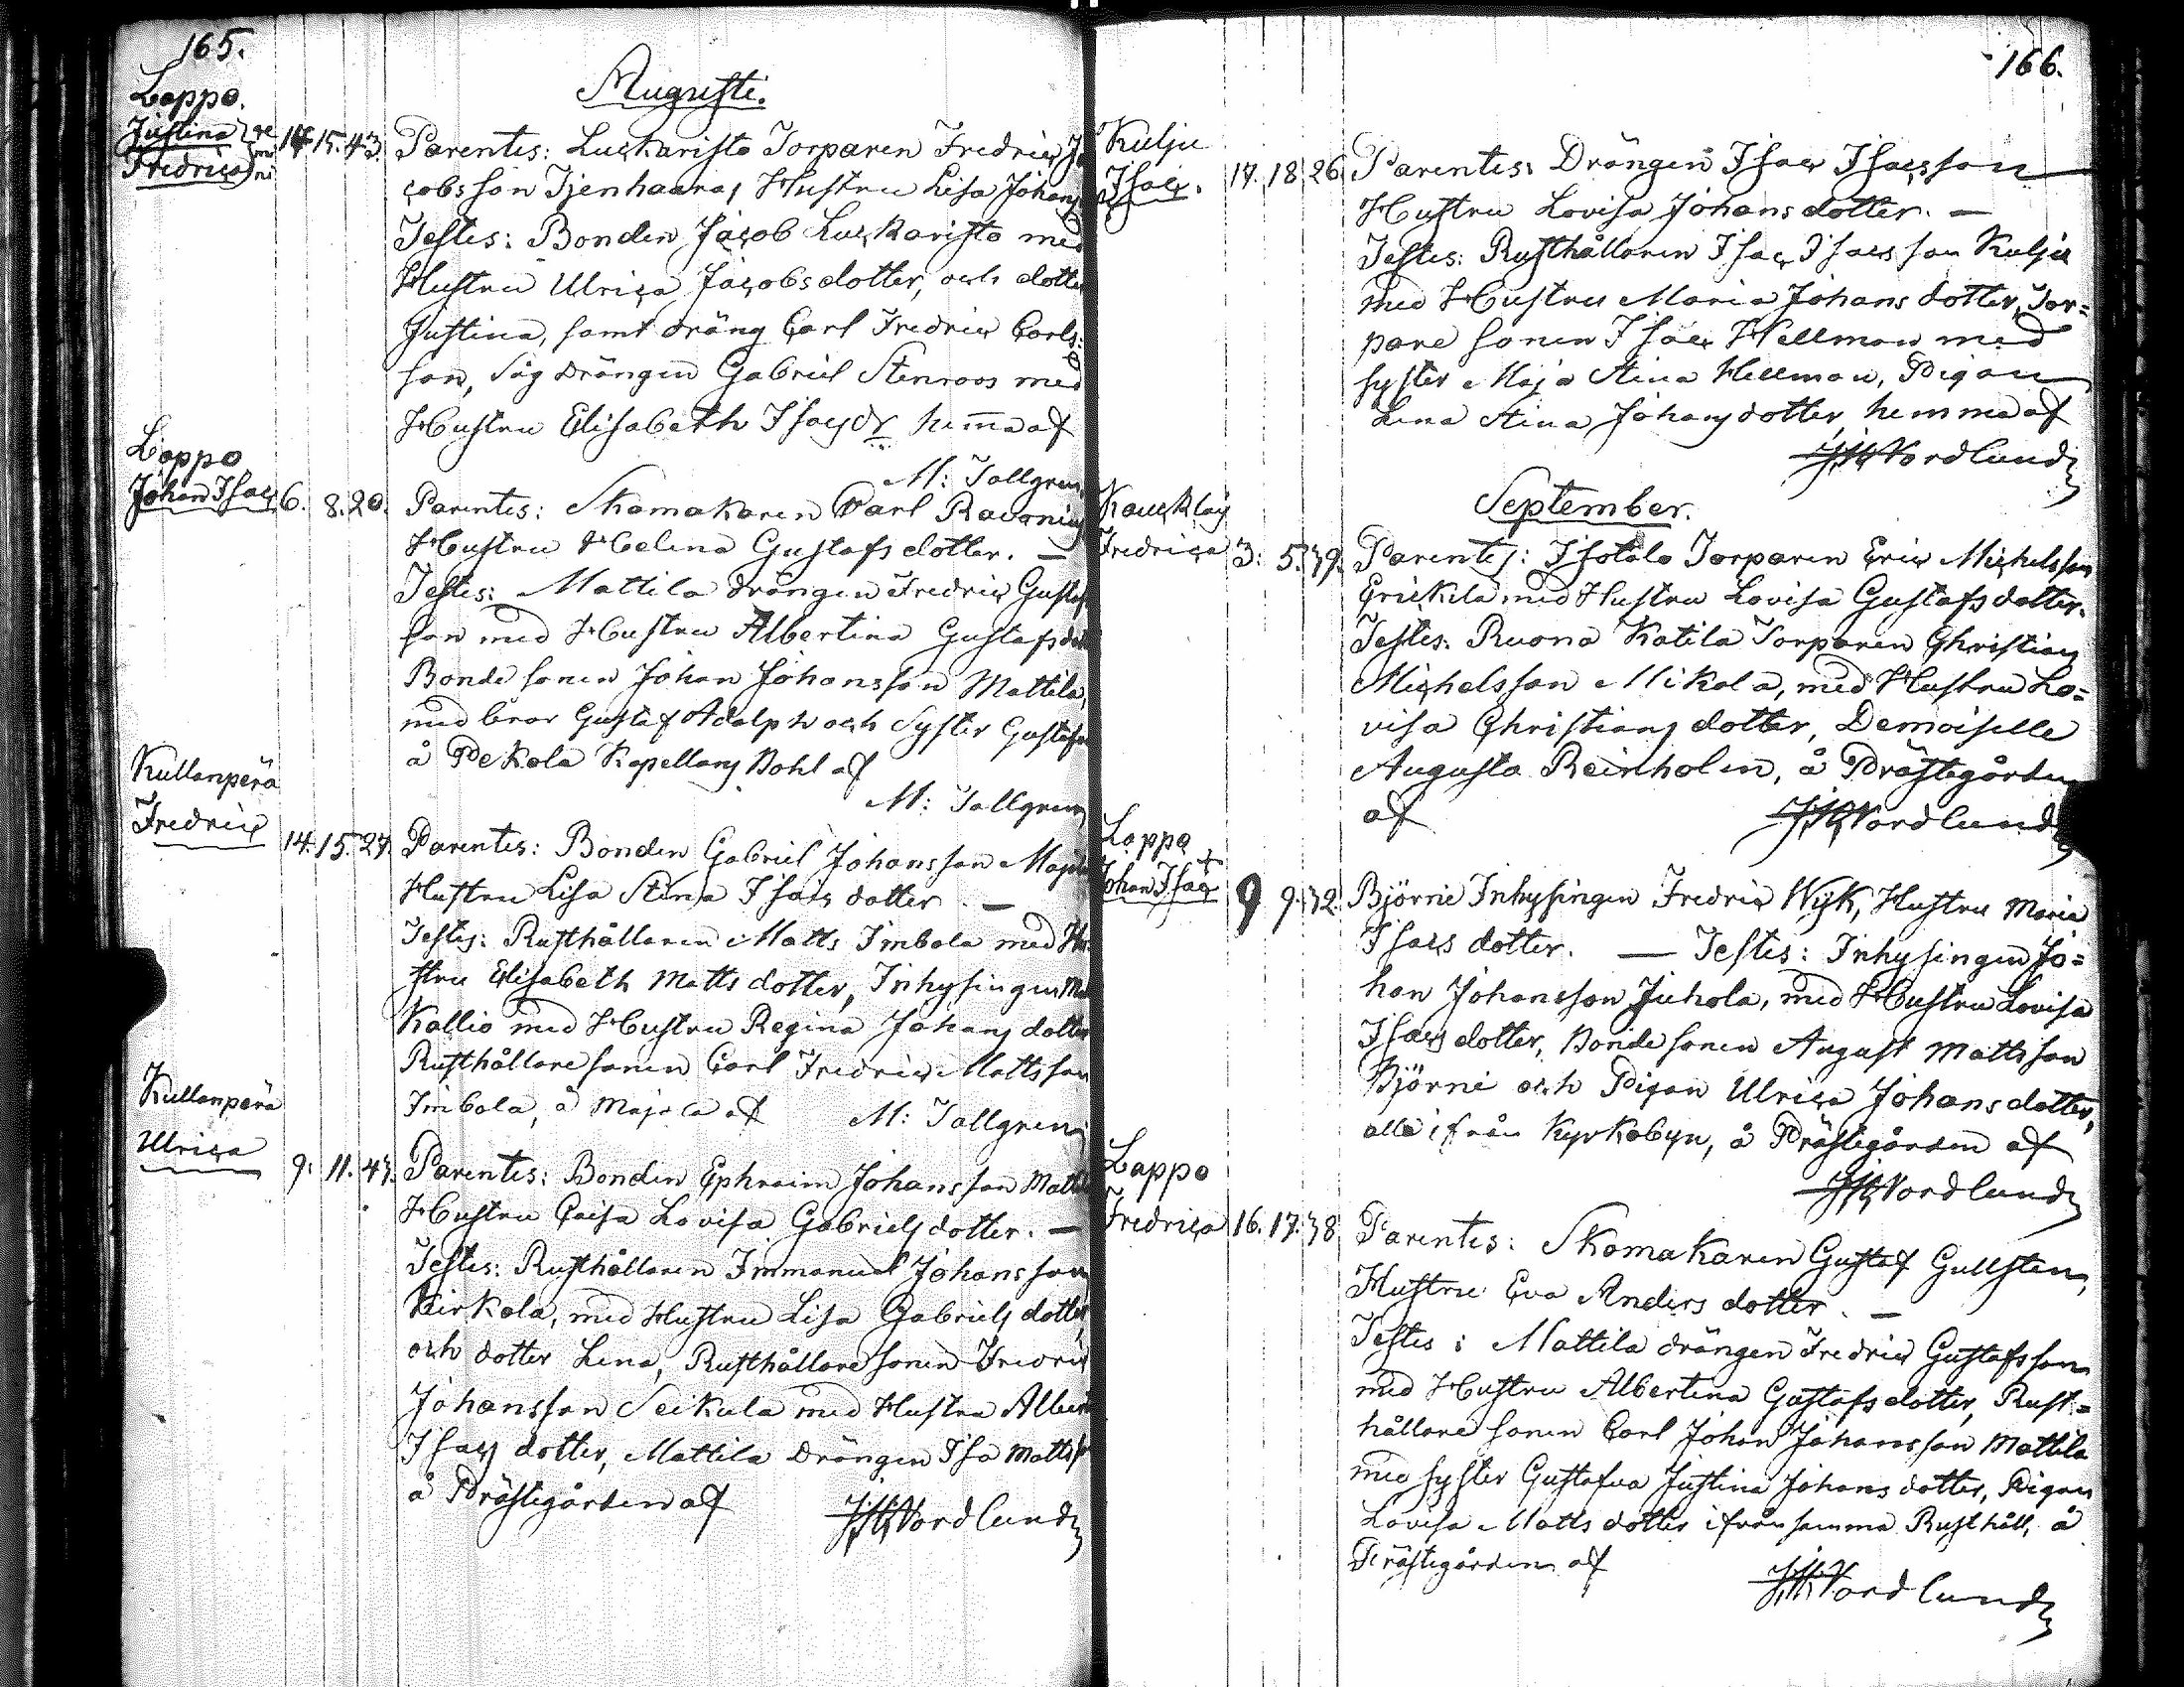 165.
Augusti.
Lappo.
Justina
Fredrica
gemini
14. 15. 43.
Parentes: Luckaristo Torparen Fredric Ja
cobsson Tjenhaara, Hustru Lisa Johans
Testes: Bonden Jacob Luckaristo med
Hustru Ulrica Jacobsdotter, och dotter
Justina, samt dräng Carl Fredric Carls:
son, Såg drängen Gabriel Stenroos med
Hustru Elisabeth Isacsdr hemma af
M: Tallgren
Lappo
Johan Isac 6. 8. 20.
Parentes: Skomakaren Carl Ravonius
Hustru Helena Gustafsdotter. —
Testes: Mattila drängen Fredric Gustaf
son med Hustru Albertina Gustafsdott
Bonde sonen Johan Johansson Mattila,
med bror Gustaf Adolph och Syster Gustafva
å Pekola Kapellans Bohl af
M: Tallgren
Kullanperä
Fredric
14. 15. 27.
Parentes: Bonden Gabriel Johansson Majala
Hustru Lisa Stina Isacsdotter. —
Testes: Rusthållaren Matts Imbola med Hu
stru Elisabeth Mattsdotter, Inhysingen
Kallio med Hustru Regina Johansdotter
Rusthållaresonen Carl Fredric Mattsson
Imbola, å Majala af M: Tallgren
Kullanperä
Ulrica
9. 11. 43.
Parentes: Bonden Ephraim Johansson Matt
Hustru Caisa Lovisa Gabrielsdotter. —
Testes: Rusthållaren Immanuel Johansson
Keirkola, med Hustru Lisa Gabrielsdotter
och dotter Lena, Rusthållaresonen Fredric
Johansson Seikula med Hustru Albert
Isacsdotter, Mattila drängen Isa Mattss
å Prästegården af
Nordlund
166.
Kulju
Isac.
17. 18. 26
Parentes: Drängen Isac Isacsson
Hustru Lovisa Johansdotter. —
Testes: Rusthållaren Isac Isacsson Kulju
med Hustru Maria Johansdotter, Tor=
pare sonen Isac Hellman med
syster Maja Stina Hellman, Pigan
Lena Stina Johansdotter, hemma af
Nordlund
September.
Kaucklas
Fredrica 3: 5. 39.
Parentes: Isotalo Torparen Eric Michelsson
Erickila med Hustru Lovisa Gustafsdotter.
Testes: Ruona Katila Torparen Christian
Michelsson Mikola, med Hustru Lo=
visa Christiansdotter, Demoiselle
Augusta Reinholm, å Prästegården
af
Nordlund
Lappo
Johan Isac +
9 9. 32
Björni Inhysingen Fredric Wijk, Hustru Maria
Isacsdotter. — Testes: Inhysingen Jo=
han Johansson Juhola, med Hustru Lovisa
Isacsdotter, Bondesonen August Mattsson
Björni och Pigan Ulrica Johansdotter,
alla ifrån Kyrkobyn, å Prästegården af
Nordlund
Lappo
Fredrica 16. 17. 38
Parentes: Skomakaren Gustaf Gullsten,
Hustru Eva Andersdotter. —
Testes: Mattila drängen Fredric Gustafsson
med Hustru Albertina Gustafsdotter, Rust=
hållare sonen Carl Johan Johansson Mattila
med syster Gustafva Justina Johansdotter, Pigan
Lovisa Mattsdotter ifrån samma Rusthåll, å
Prästegården af
Nordlund